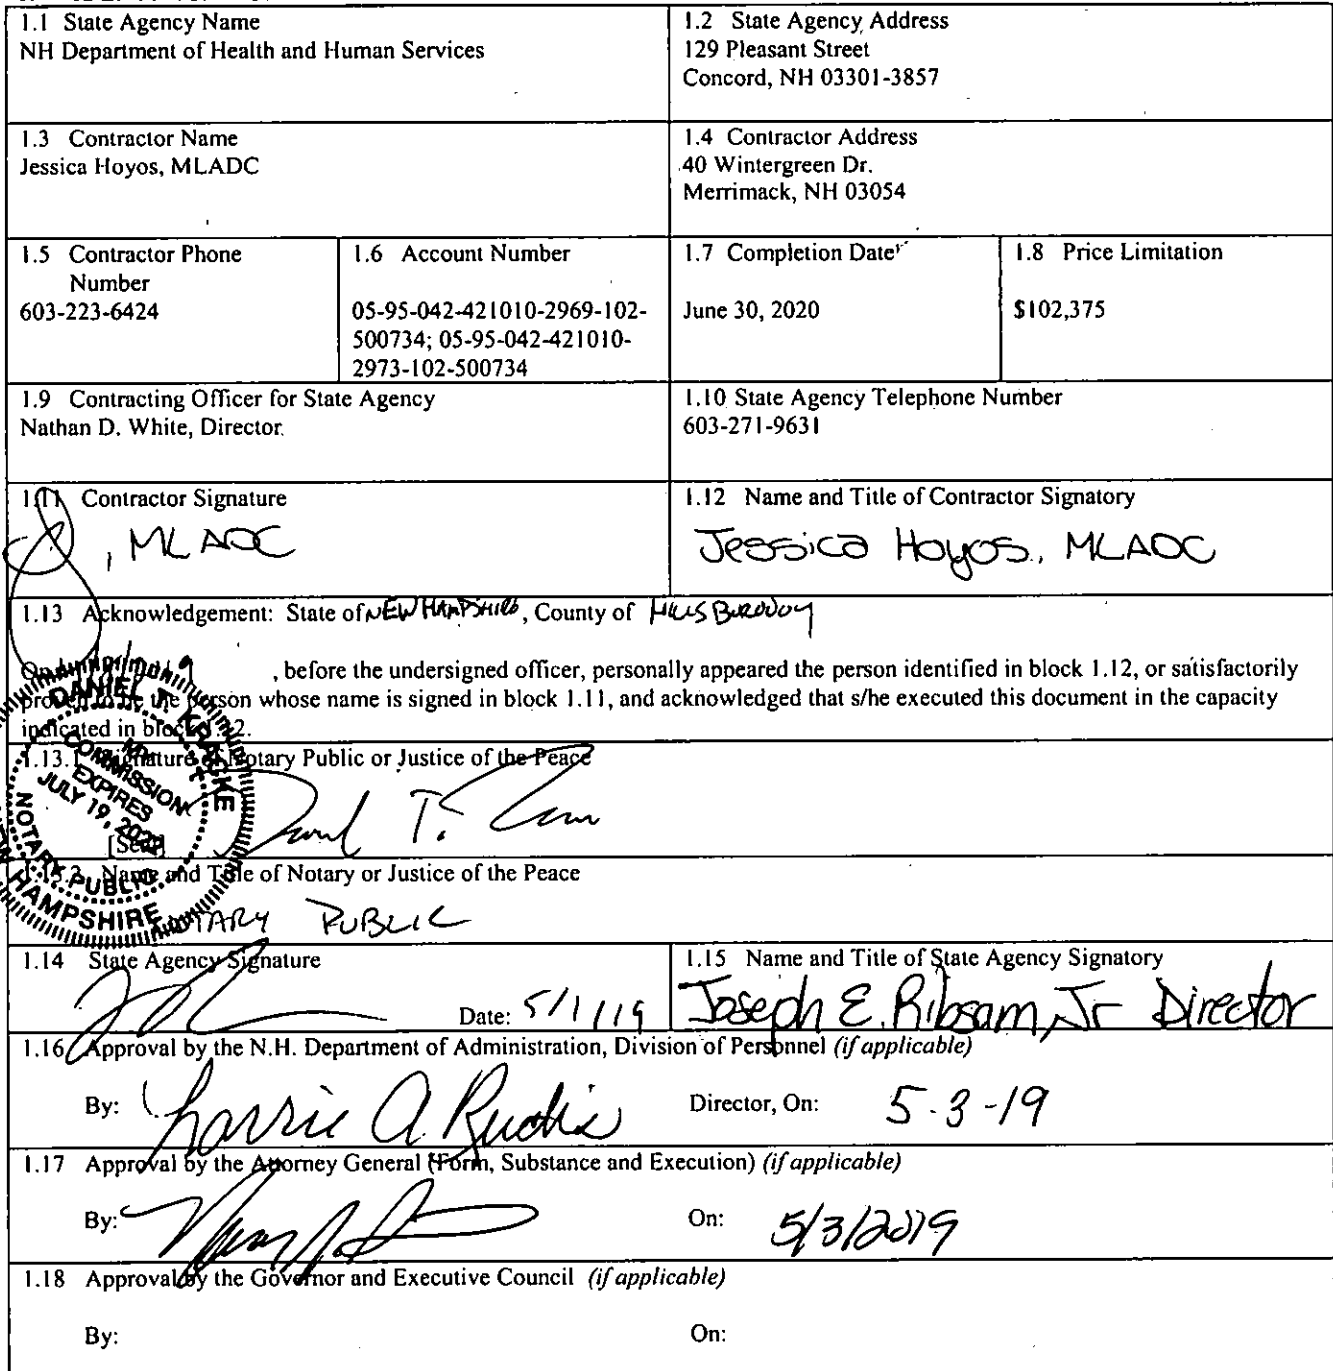 1.1 State Agency Name
NH Department of Health and Human Services
1.2 State Agency Address
129 Pleasant Street
Concord, NH 03301-3857
1.3 Contractor Name
Jessica Hoyos, MLADC
1.4 Contractor Address
40 Wintergreen Dr.
Merrimack, NH 03054
1.5 Contractor Phone
Number
603-223-6424
1.6 Account Number
05-95-042-421010-2969-102-
500734; 05-95-042-421010-
2973-102-500734
1.7 Completion Date
June 30, 2020
1.8 Price Limitation
$102,375
1.9 Contracting Officer for State Agency
Nathan D. White, Director
1.10 State Agency Telephone Number
603-271-9631
1.11 Contractor Signature
, MLADC
1.12 Name and Title of Contractor Signatory
Jessica Hoyos, MLADC
1.13 Acknowledgement: State of NEW HAMPSHIRE, County of HILLSBOROUGH
On , before the undersigned officer, personally appeared the person identified in block 1.12, or satisfactorily
proven to be the person whose name is signed in block 1.11, and acknowledged that s/he executed this document in the capacity
indicated in block 1.12.
1.13.1 Signature of Notary Public or Justice of the Peace
[Seal]
DANIEL T. KRACKE
MY
COMMISSION
EXPIRES
JULY 19,
NOTARY PUBLIC
HAMPSHIRE
1.13.2 Name and Title of Notary or Justice of the Peace
NOTARY PUBLIC
1.14 State Agency Signature
Date: 5/1/19
1.15 Name and Title of State Agency Signatory
Joseph E. Ribsam, Jr Director
1.16 Approval by the N.H. Department of Administration, Division of Personnel (if applicable)
By: Lorrie A. Rudis Director, On: 5-3-19
1.17 Approval by the Attorney General (Form, Substance and Execution) (if applicable)
By: On: 5/3/2019
1.18 Approval by the Governor and Executive Council (if applicable)
By: On: